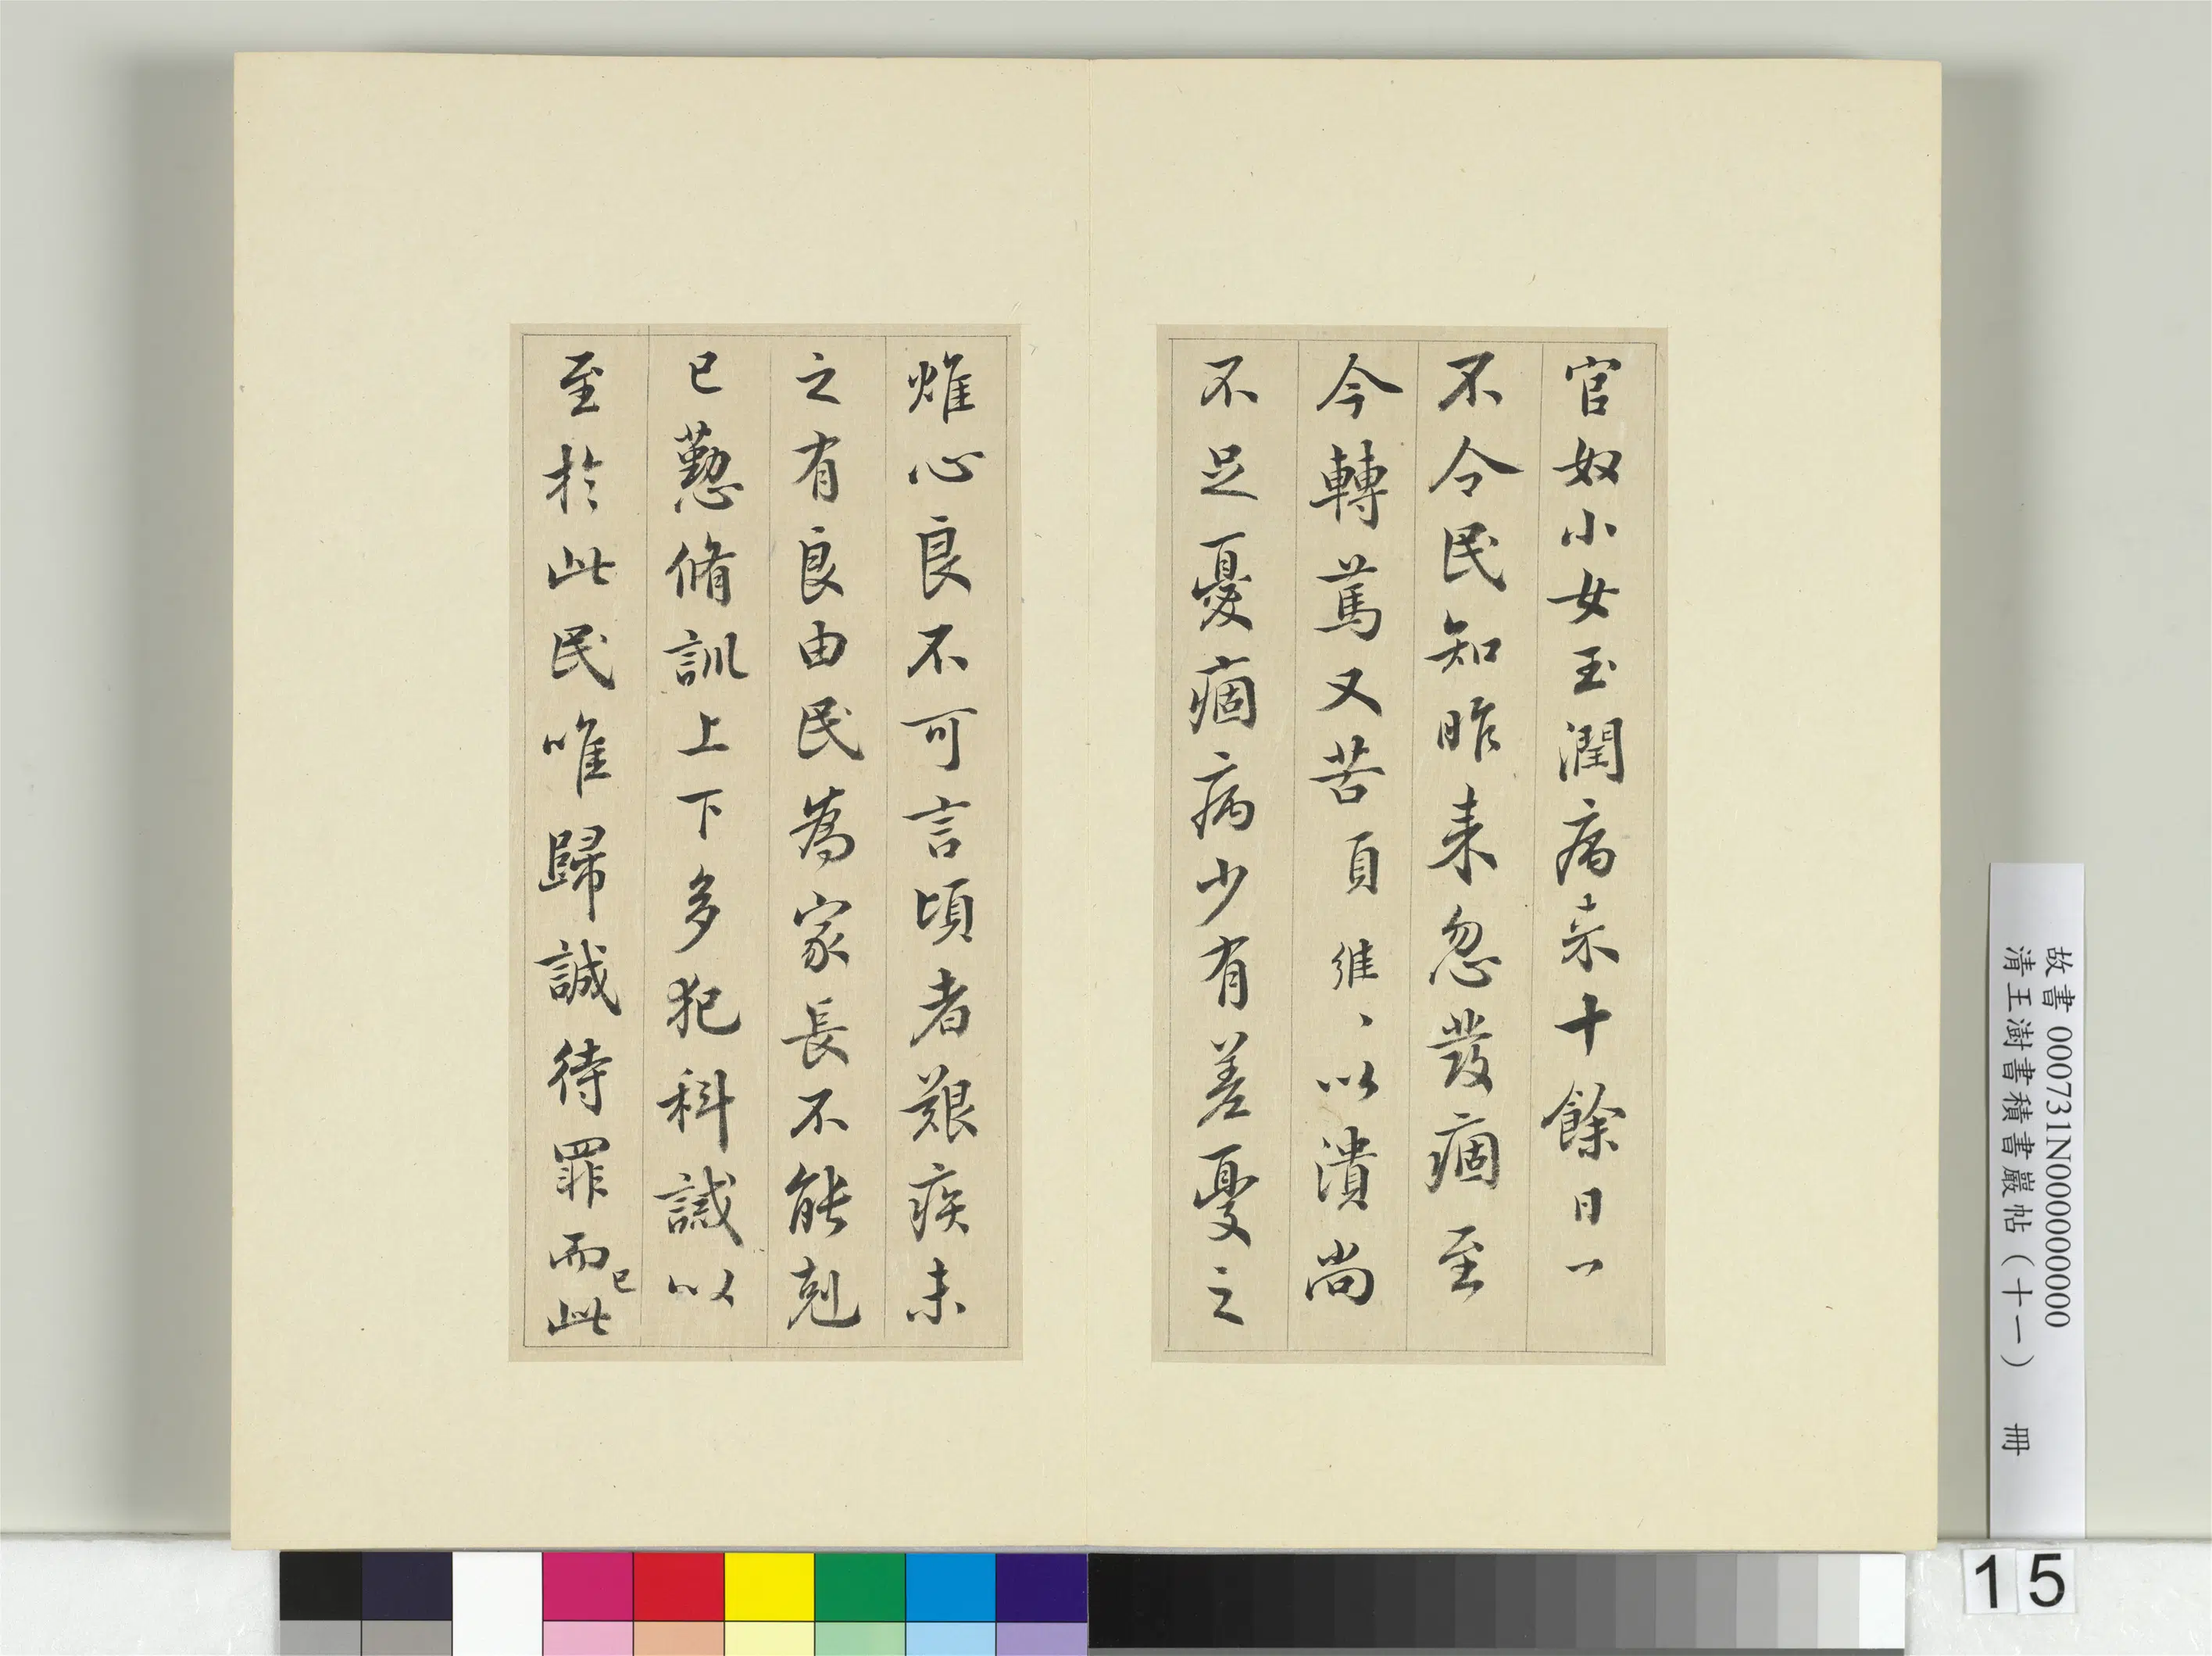 官奴小女玉潤病来十餘日一
不令民知昨来忽發痼至
今轉篤又苦頭癰、以潰尚
不足憂痼病少有差憂之
燋心良不可言頃者艱疾未
之有良由民為家長不能剋
已懃脩訓上下多犯科誡以
至於此民唯歸誠待罪而已此
故書 000731N000000000
清王澍書積書巖帖（十一） 冊
15